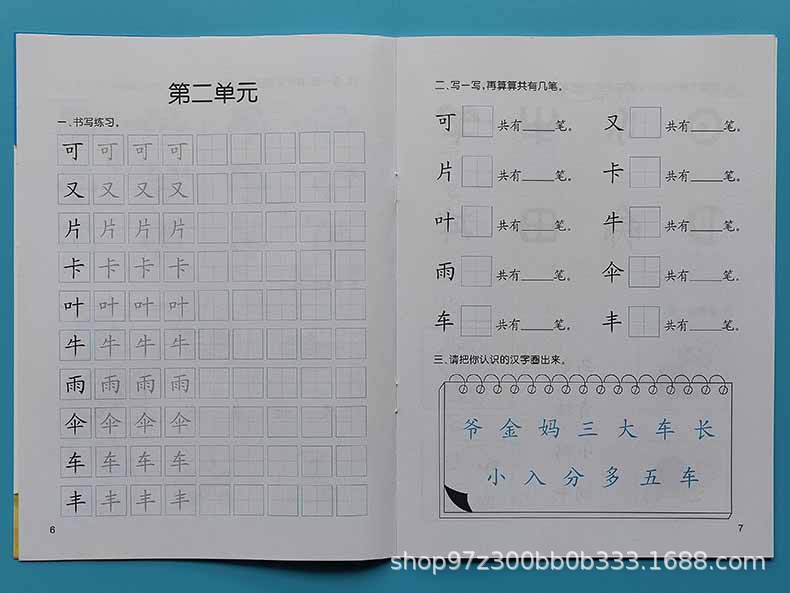 第二单元
一、书写练习。
可 可 可 可
又 又 又 又
片 片 片 片
卡 卡 卡 卡
叶 叶 叶 叶
牛 牛 牛 牛
雨 雨 雨 雨
伞 伞 伞 伞
车 车 车 车
丰 丰 丰 丰
6
二、写一写,再算算共有几笔。
可 共有____笔。 又 共有____笔。
片 共有____笔。 卡 共有____笔。
叶 共有____笔。 牛 共有____笔。
雨 共有____笔。 伞 共有____笔。
车 共有____笔。 丰 共有____笔。
三、请把你认识的汉字圈出来。
爷 金 妈 三 大 车 长
小 入 分 多 五 车
7
shop97z300bb0b333.1688.com